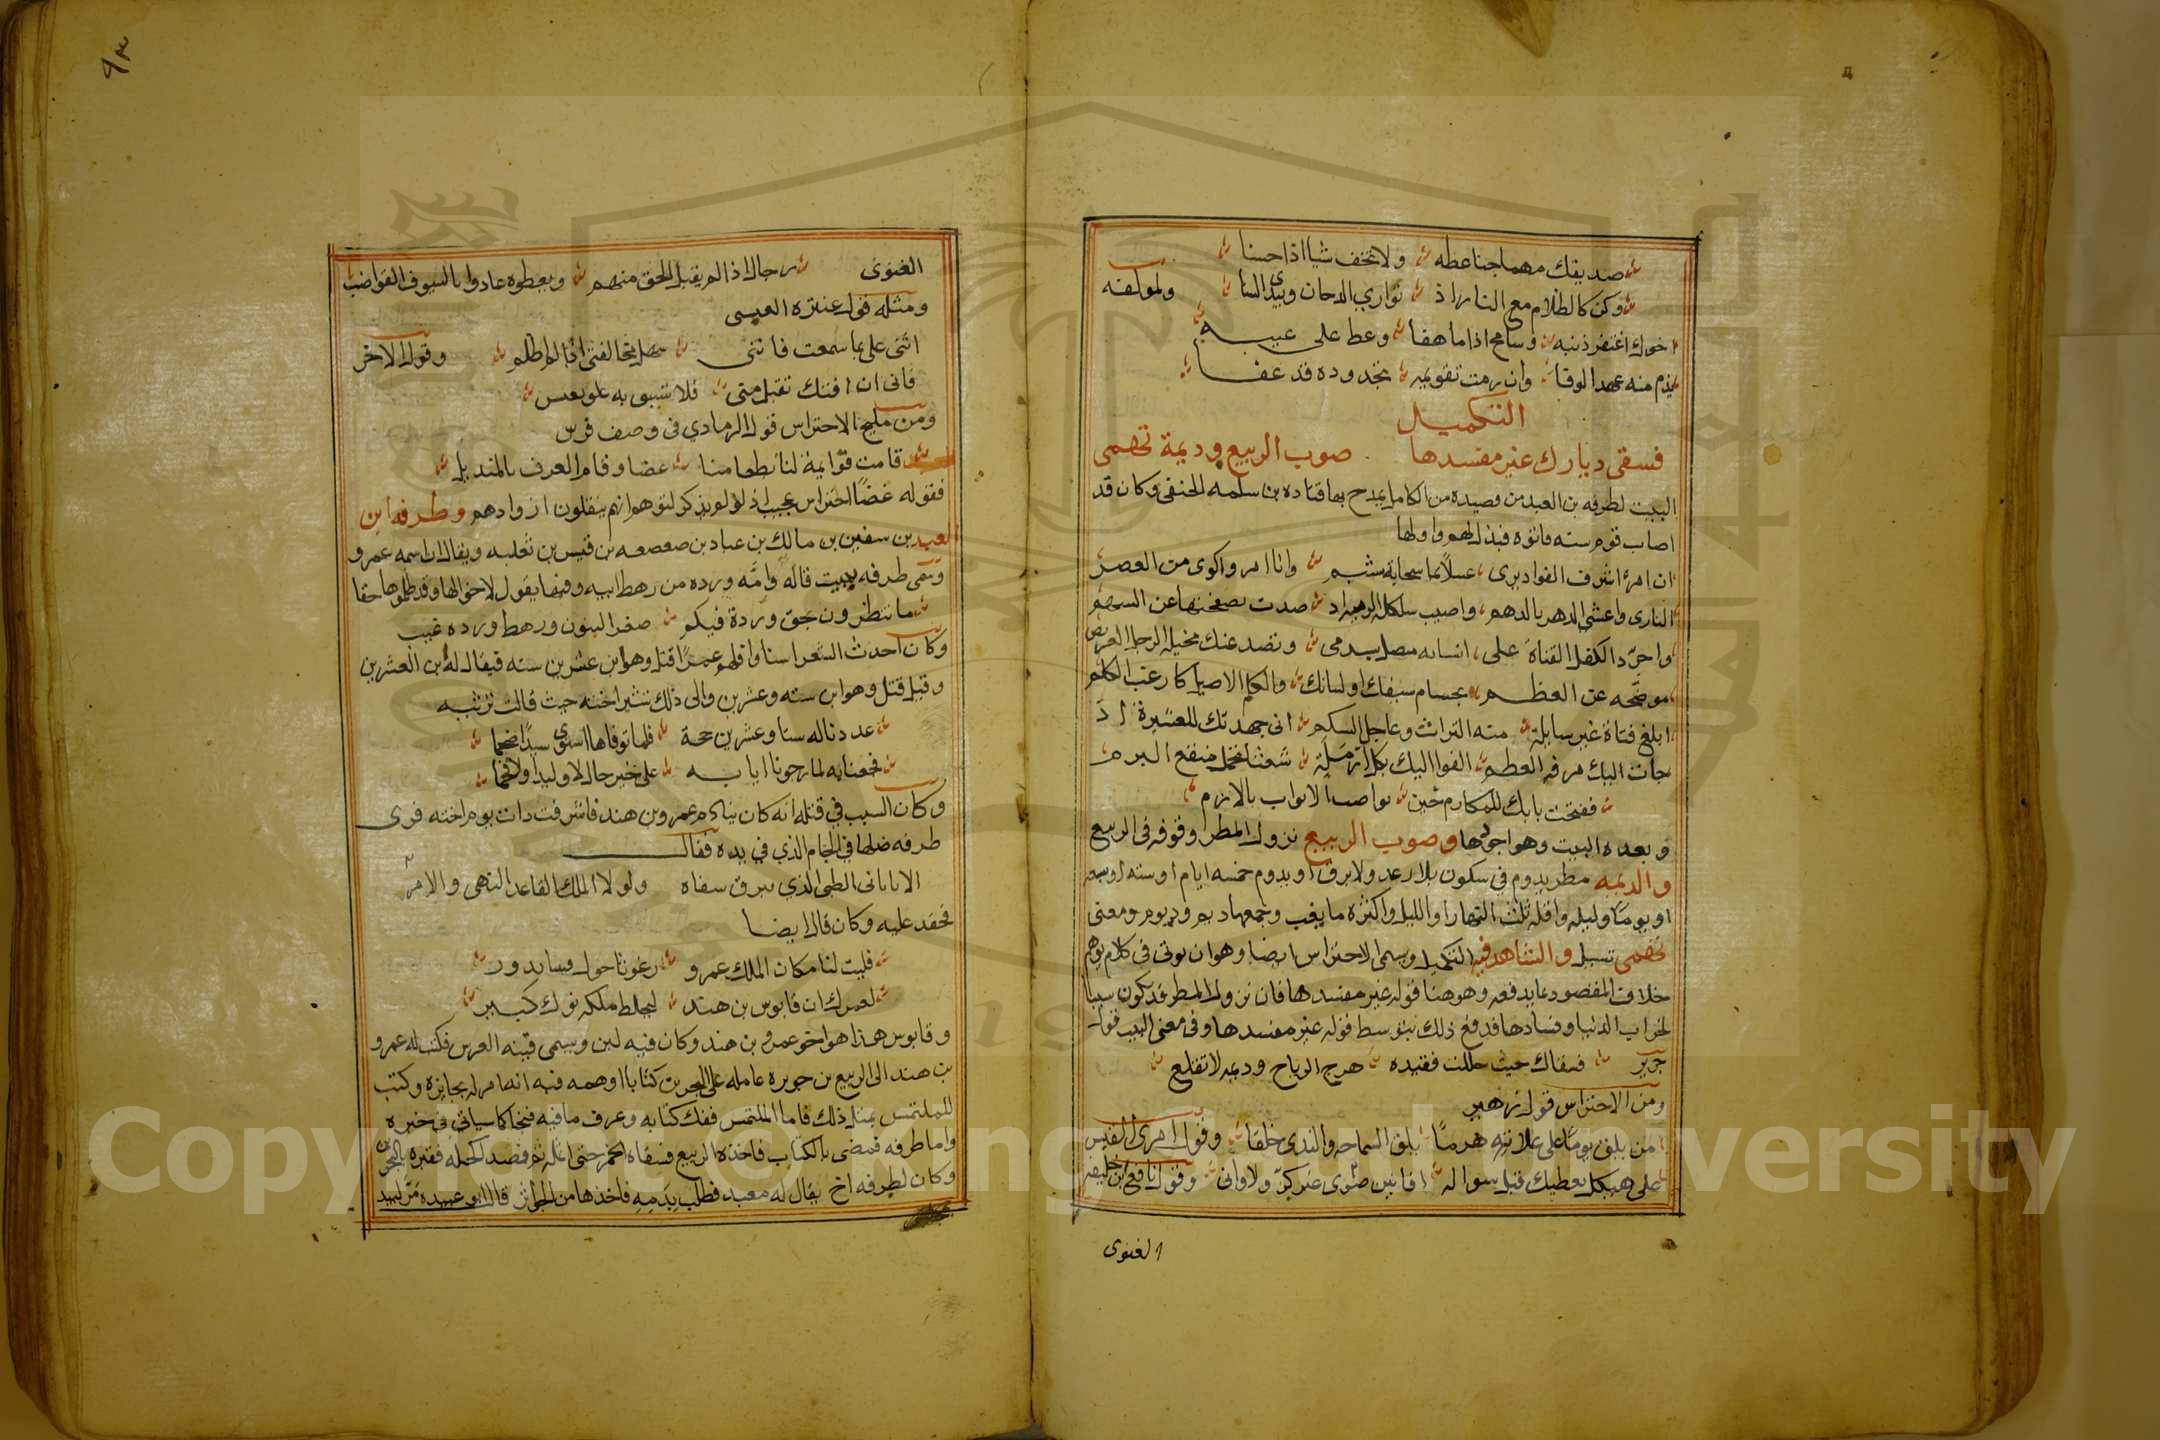 صديقك مهما جنا غطه ولا تخف شيا اذا احسنا
وكن كالظلام مع النار اذ تواري الدخان وتبدي السنا ولمولفه
اخوك اغتفر ذنبه وسامح اذا ما هفا وغط على عيبه
يدم منه عهد الوفا وان رمت تقويمه بخدوده قد عفا
التكميل
فسقى ديارك غير مفسدها صوب الربيع وديمة تهمى
البيت لطرفه بن العبد من قصيده من الكامل يمدح بها قتاده بن سلمه الحنفي وكان قد
اصاب قومه سنه فاتوه فبذل لهم واولها
ان امرء اسرف الفواد يرى عسلا بما سحابة شتمى وانا امرو اكوى من القصر
البادى واغشى الدهر بالدهم واصيب شاكلة الرميه اذ صدت بصفحتها عن السهم
واجر ذا الكفل القناة على انسائه فيظل يستدمى وتصد عنك مخيلة الرجل العريض
موضحه عن العظم بحسام سيفك او لسانك والكلم الاصيل كارغب الكلم
ابلغ قتادة غير سايله منه الثواب وعاجل الشكم انى حمدتك للعشيرة اذ
جات اليك مرقه العظم القوا اليك بكل ارملة شعثا تحمل منقع البرم
ففتحت بابك للمكارم حين تواصت الابواب بالازم
وبعده البيت وهو اخرها وصوب الربيع نزول المطر وقوفه فى الربيع
والديمه مطر يدوم في سكون بلا رعد ولا برق او يدوم خمسه ايام او سته او سبعه
او يوما وليله واقله ثلث النهار او الليل واكثره ما يغب وجمعها ديم وديوم ومعنى
تهمى تسيل والشاهد فيه التكميل ويسمى الاحتراس ايضا وهو ان يوتى فى كلام يوهم
خلاف المقصود بما يدفعه وهو هنا قوله غير مفسدها فان نزول المطر قد يكون سببا
لخراب الدنيا وفسادها فدفع ذلك بتوسط قوله غير مفسدها وفي معنى البيت قول
جرير فسقاك حيث حللت فقيده هزج الرياح وديمه لا تقلع
ومن الاحتراس قول زهير
من يلق يوما على علاته هرما يلق السماحه والندى خلقا وقول امرى القيس
على هيكل يعطيك قبل سواله افانين جرى غير كز ولا وانى وقول نافع بن خليفه
الغنوى
الغنوى رجال اذا لم يقبل الحق منهم ويعطوه عادوا بالسيوف القواضب
ومثله قول عنتره العبسى
اثنى على بما سمعت فاننى سهل مخالفتى اذا لم اظلم وقول الاخر
فانى ان افتك تفتك منى فلا تسبق به علق نفيس
ومن مليح الاحتراس قول الرمادي فى وصف فرس
قامت قوايمة لنا بطعامنا غضا وقام العرف بالمنديل
فقوله غضا احتراس عجيب اذ لو لم يذكر لتوهم انهم ينقلون ازوادهم وطرفه ابن
العبد بن سفين بن مالك بن عباد بن صعصعه بن قيس بن ثعلبه ويقال ان اسمه عمرو
وسمى طرفه ببيت قاله وامه ورده من رهط ابيه وفيها يقول لاخوالها وقد ظلموها حقا
ما تنظرون بحق وردة فيكم صغر البنون ورهط ورده غيب
وكان احدث الشعرا سنا واقلهم عمرا قتل وهو ابن عشرين سنه فيقال له ابن العشرين
وقيل قتل وهو ابن سته وعشرين والى ذلك تشير اخته حيث قالت ترثيه
عددنا له ستا وعشرين حجة فلما توفاها استوى سيدا ضخما
فجعنا به لما رجونا ايابه على خير حال لا وليدا ولا قحما
وكان السبب في قتله انه كان ينادم عمرو بن هند فاشرفت ذات يوم اخته فراى
طرفه ظلها في الجام الذي في يده فقال
الا يا بانى الظبى الذي يبرق شنفاه ولولا الملك القاعد النهى والامر
فحقد عليه وكان قال ايضا
فليت لنا مكان الملك عمرو رغوثا حول قبتنا تدور
لعمرك ان قابوس بن هند ليخلط ملكه نوك كثير
وقابوس هذا هو اخو عمرو بن هند وكان فيه لين ويسمى قينه العرس فكتب له عمرو
بن هند الى الربيع بن حويره عامله على البحرين كتابا اوهمه فيه انه امر له بجايزه وكتب
للملتمس بمثل ذلك فاما الملتمس ففك كتابه وعرف ما فيه فنجا كما سياتي في خبره
واما طرفه فمضى بالكتاب فاخذه الربيع فسقاه الخمر حتى اثمله ثم فصد اكحله فقبره بالبحرين
وكان لطرفه اخ يقال له معبد فطلب بديته فاخذها من الحواثر قال ابو عبيده مر لبيد